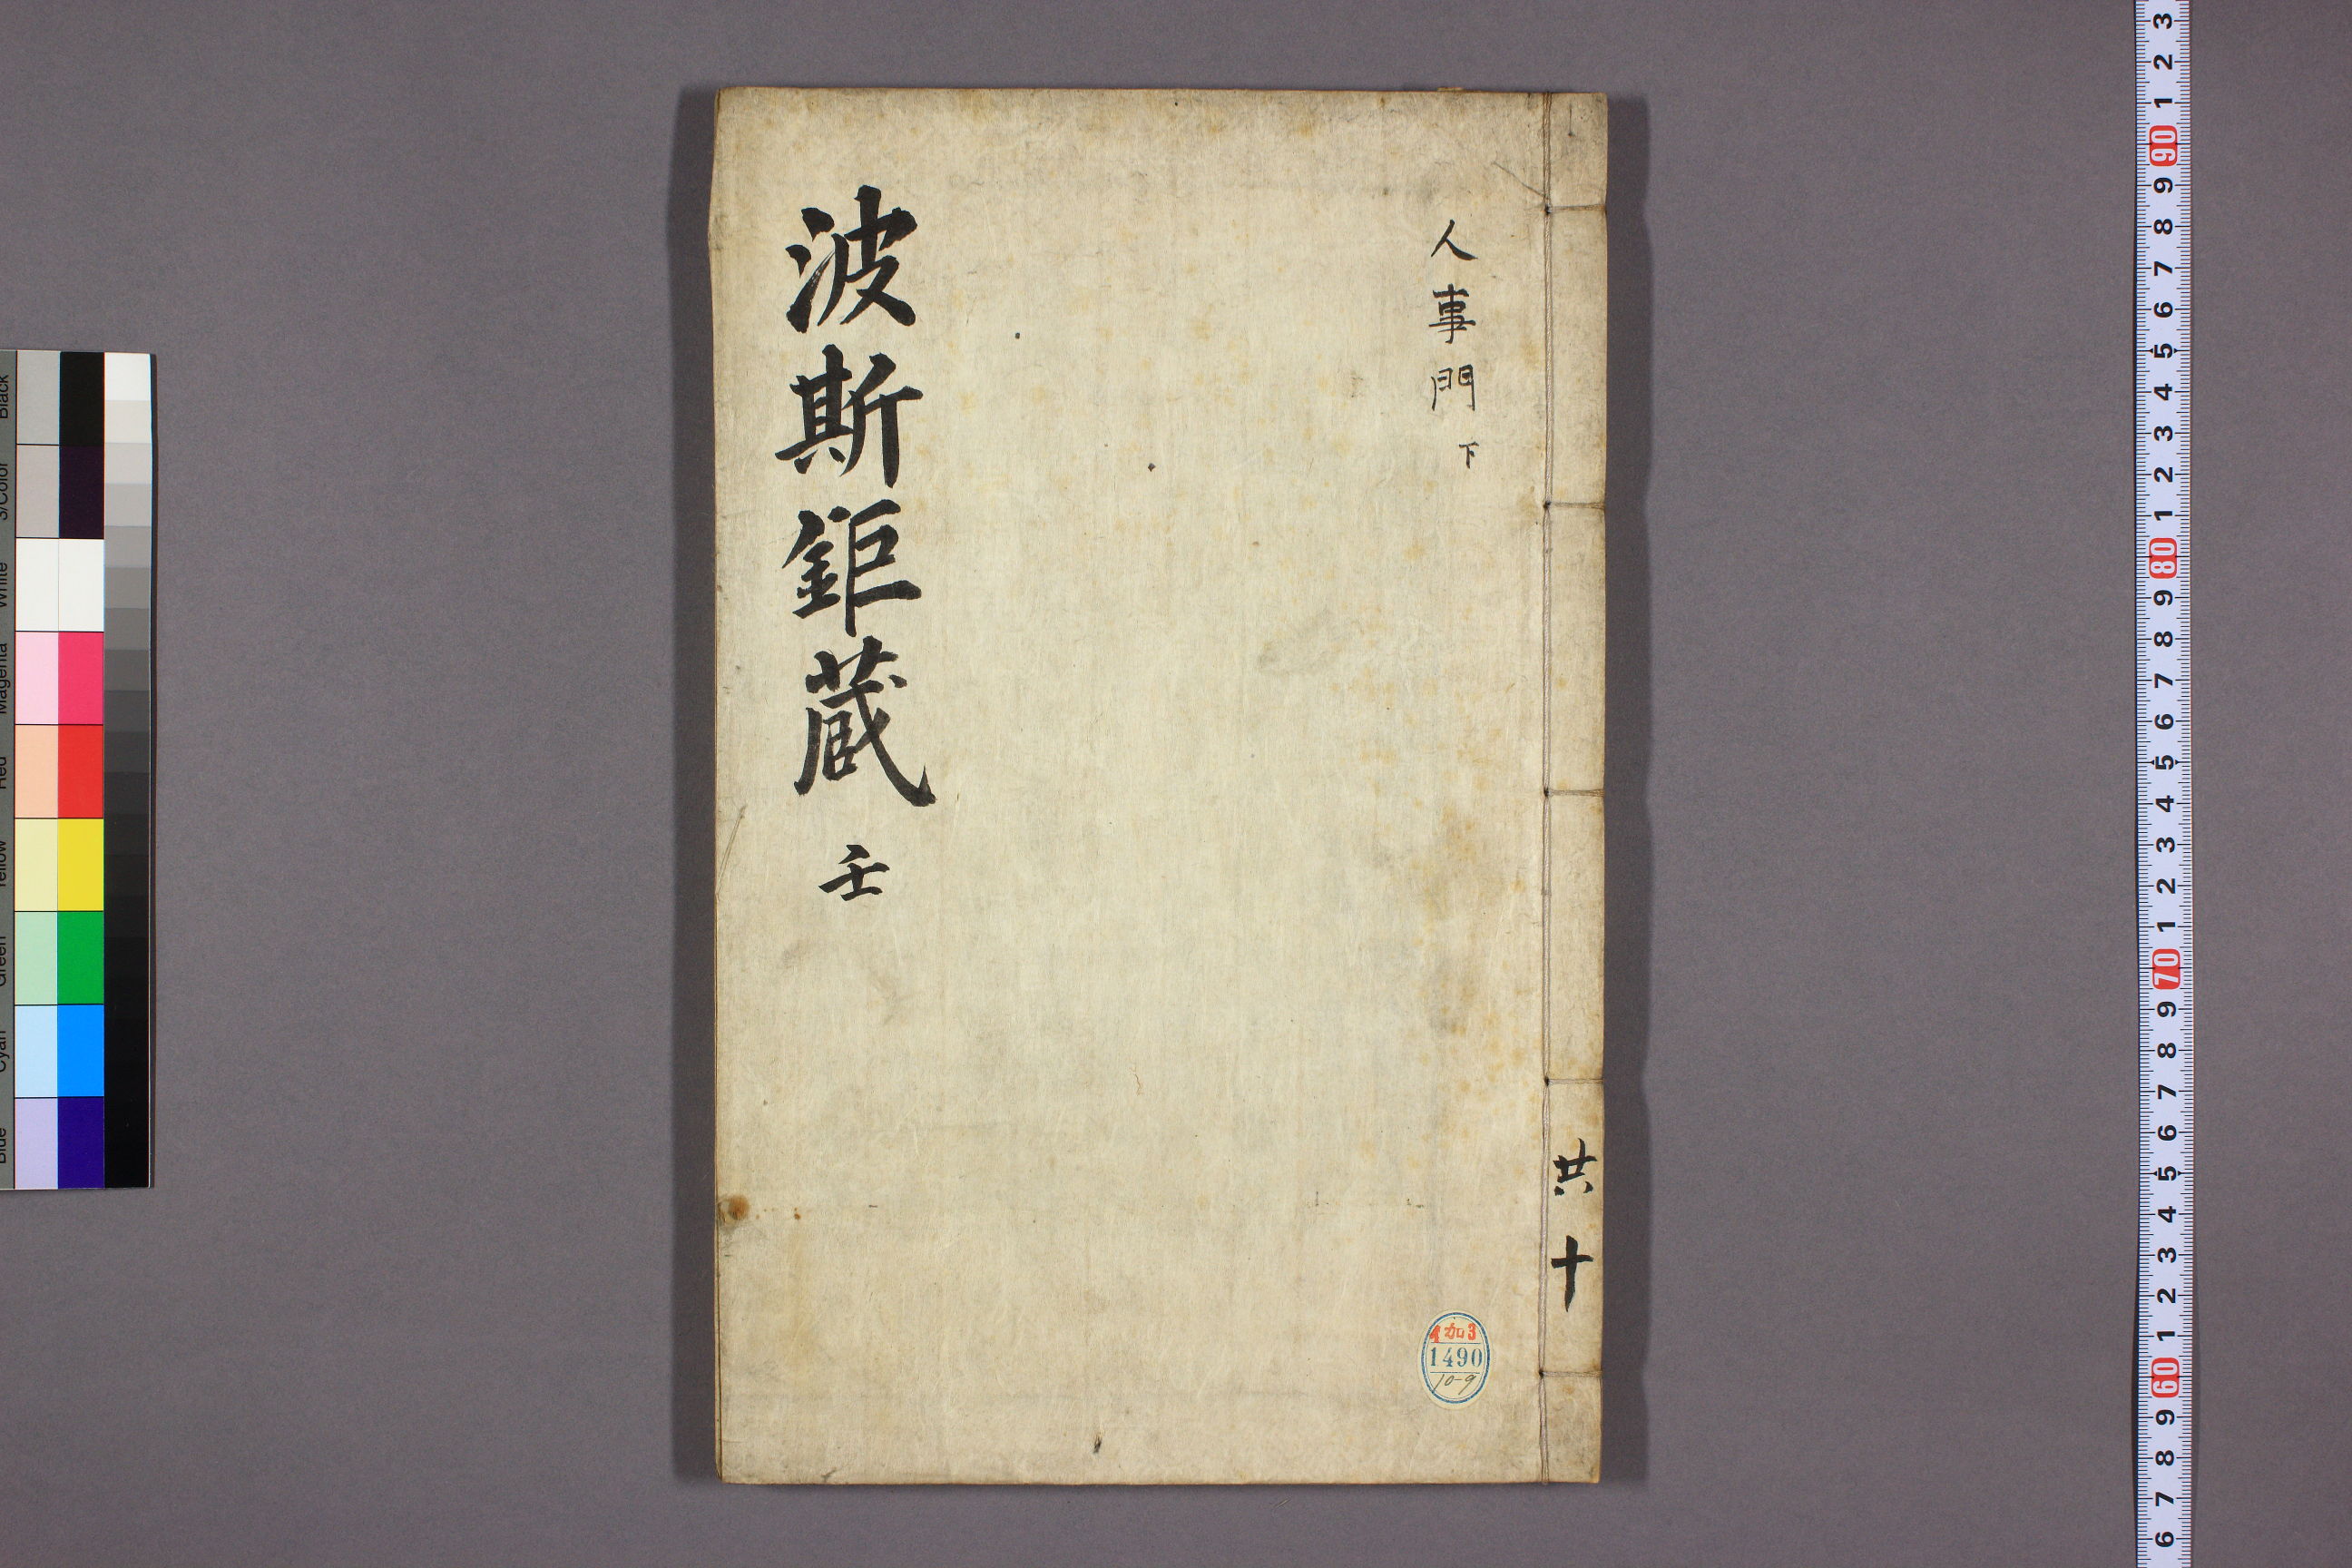 人事門 下
波斯鉅蔵 壬
共十
加3
1490
10-9
Black
3/Color
White
Magenta
Red
Yellow
Green
Cyan
Blue
3
2
1
90
9
8
7
6
5
4
3
2
1
80
9
8
7
6
5
4
3
2
1
70
9
8
7
6
5
4
3
2
1
60
9
8
7
6